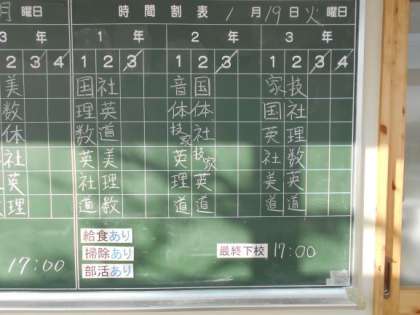 月 曜日 時間割表 1月19日火曜日
3年 1年 2年 3年
2 3 4 1 2 3 1 2 3 1 2 3 4
美 国 社 音 国 家 技
数 理 英 体 体 国 社
体 数 道 技家 社 英 理
社 英 美 英 技家 社 数
英 社 理 理 英 美 英
理 道 数 道 道 道 道
給食あり
17:00 掃除あり 最終下校 17:00
部活あり